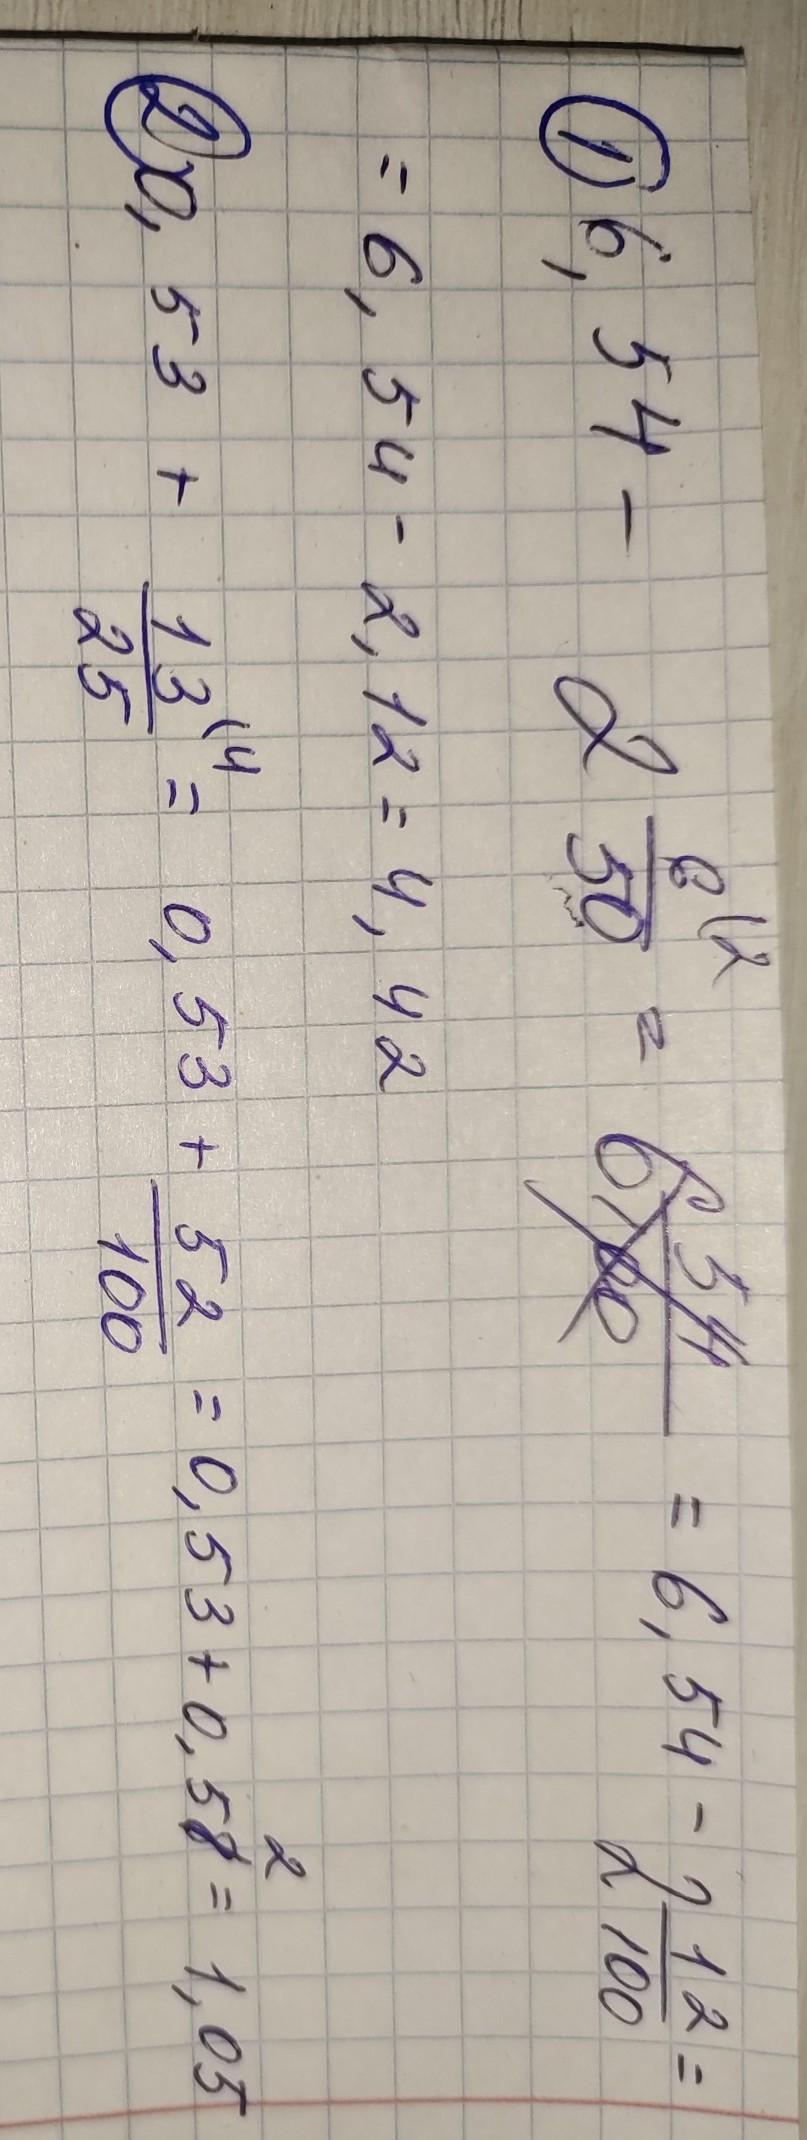 ① 6,54 - 2 6/50 (2 = 6,54/100 = 6,54 - 2 12/100 =
= 6,54 - 2,12 = 4,42
② 0,53 + 13/25 (4 = 0,53 + 52/100 = 0,53 + 0,52 = 1,05